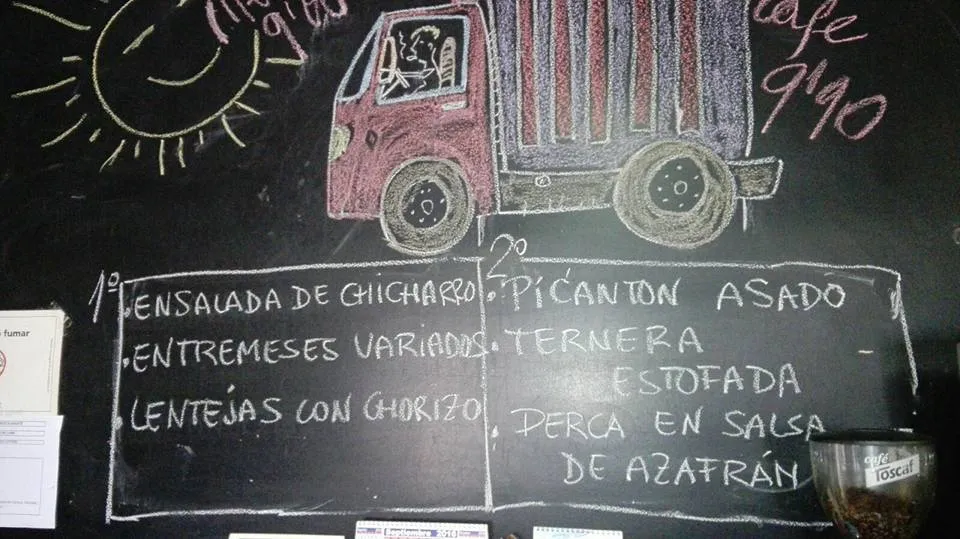 café
9'90
1º
• ENSALADA DE CHICHARRO
• ENTREMESES VARIADOS
• LENTEJAS CON CHORIZO
2º
• PICANTON ASADO
• TERNERA
ESTOFADA
• PERCA EN SALSA
DE AZAFRÁN
fumar
café
Toscaf
Septiembre 2016